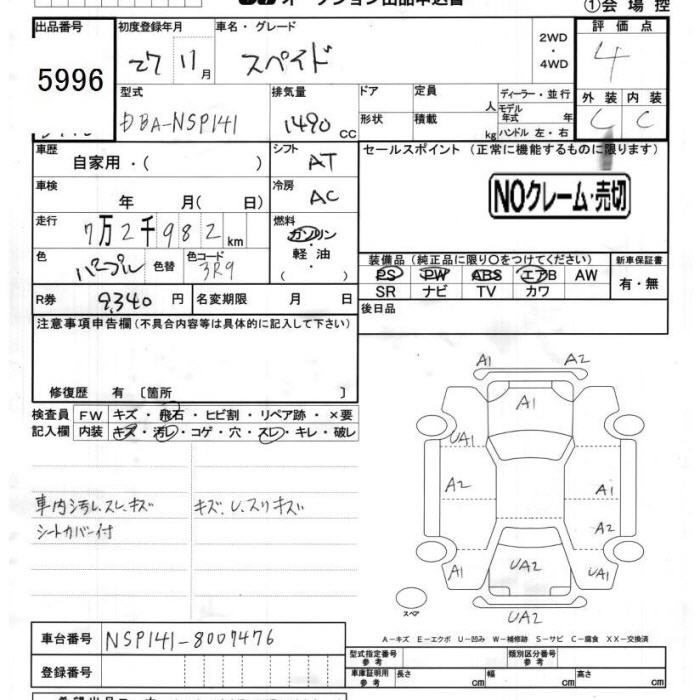 オークション出品申込書
①会場控
出品番号 初度登録年月 車名・グレード 2WD・4WD 評価点
5996 27 11月 スペイド 4
型式 排気量 ドア 定員 人 ディーラー・並行 外装 内装
DBA-NSP141 1490 CC 形状 積載 kg モデル年式 年 ハンドル 左・右 C C
車歴 自家用・( ) シフト AT セールスポイント(正常に機能するものに限ります)
車検 年 月( 日) 冷房 AC NOクレーム・売切
走行 7万2千982km 燃料 ガソリン・軽油・( )
色 パープル 色替 色コード 3R9 装備品(純正品に限り○をつけてください) 新車保証書
PS PW ABS エアB AW 有・無
SR ナビ TV カワ
R券 9,340円 名変期限 月 日 後日品
注意事項申告欄(不具合内容等は具体的に記入して下さい)
修復歴 有〔箇所 〕
検査員 FW キズ・飛石・ヒビ割・リペア跡・×要
記入欄 内装 キズ・汚レ・コゲ・穴・スレ・キレ・破レ
車内汚レ、スレ、キズ キズ、U、スリキズ
シートカバー付
A1 A2
A1
UA1
A2 A1
A2
A1 UA2 UA1
UA2
スペア
A-キズ E-エクボ U-凹み W-補修跡 S-サビ C-腐食 XX-交換済
車台番号 NSP141-8007476 型式指定番号 参考 類別区分番号 参考
登録番号 車庫証明用 参考 長さ cm 幅 cm 高さ cm